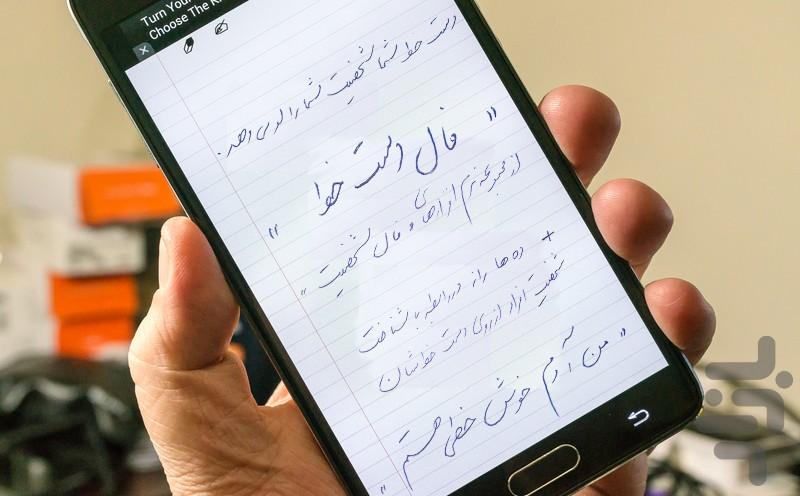 Turn Your
Choose The K
دست خط شما شخصیت شما را لو می دهد.
" فال دست خط "
از مجموعه نرم افزارهای " فال شخصیت "
+ ده ها راز در رابطه با شناخت
شخصیت افراد از روی دست خطشان
" من آدم خوش خطی هستم "
بازار